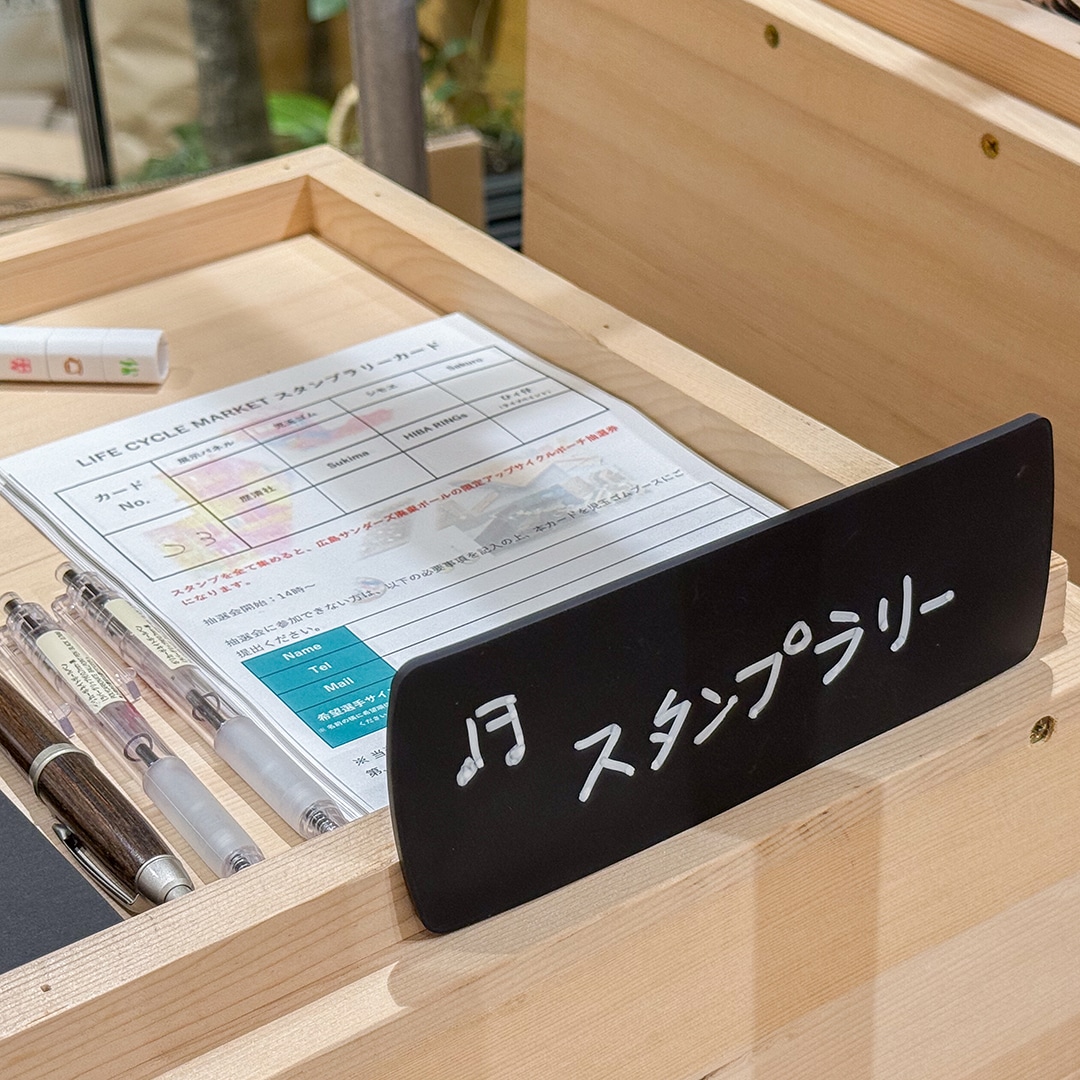 LIFE CYCLE MARKET スタンプラリーカード
カード No.
展示パネル
児玉ゴム
シモヌ
Sakuro
歴清社
Sukima
HIBA RINGs
03
スタンプを全て集めると、広島サンダーズ廃棄ボールの限定アップサイクルポーチ抽選券
になります。
抽選会開始:14時〜
抽選会に参加できない方は、以下の必要事項を記入の上、本カードを児玉ゴムブースにご
提出ください。
Name
Tel
Mail
希望選手サイ
※ 当
第
♫ スタンプラリー